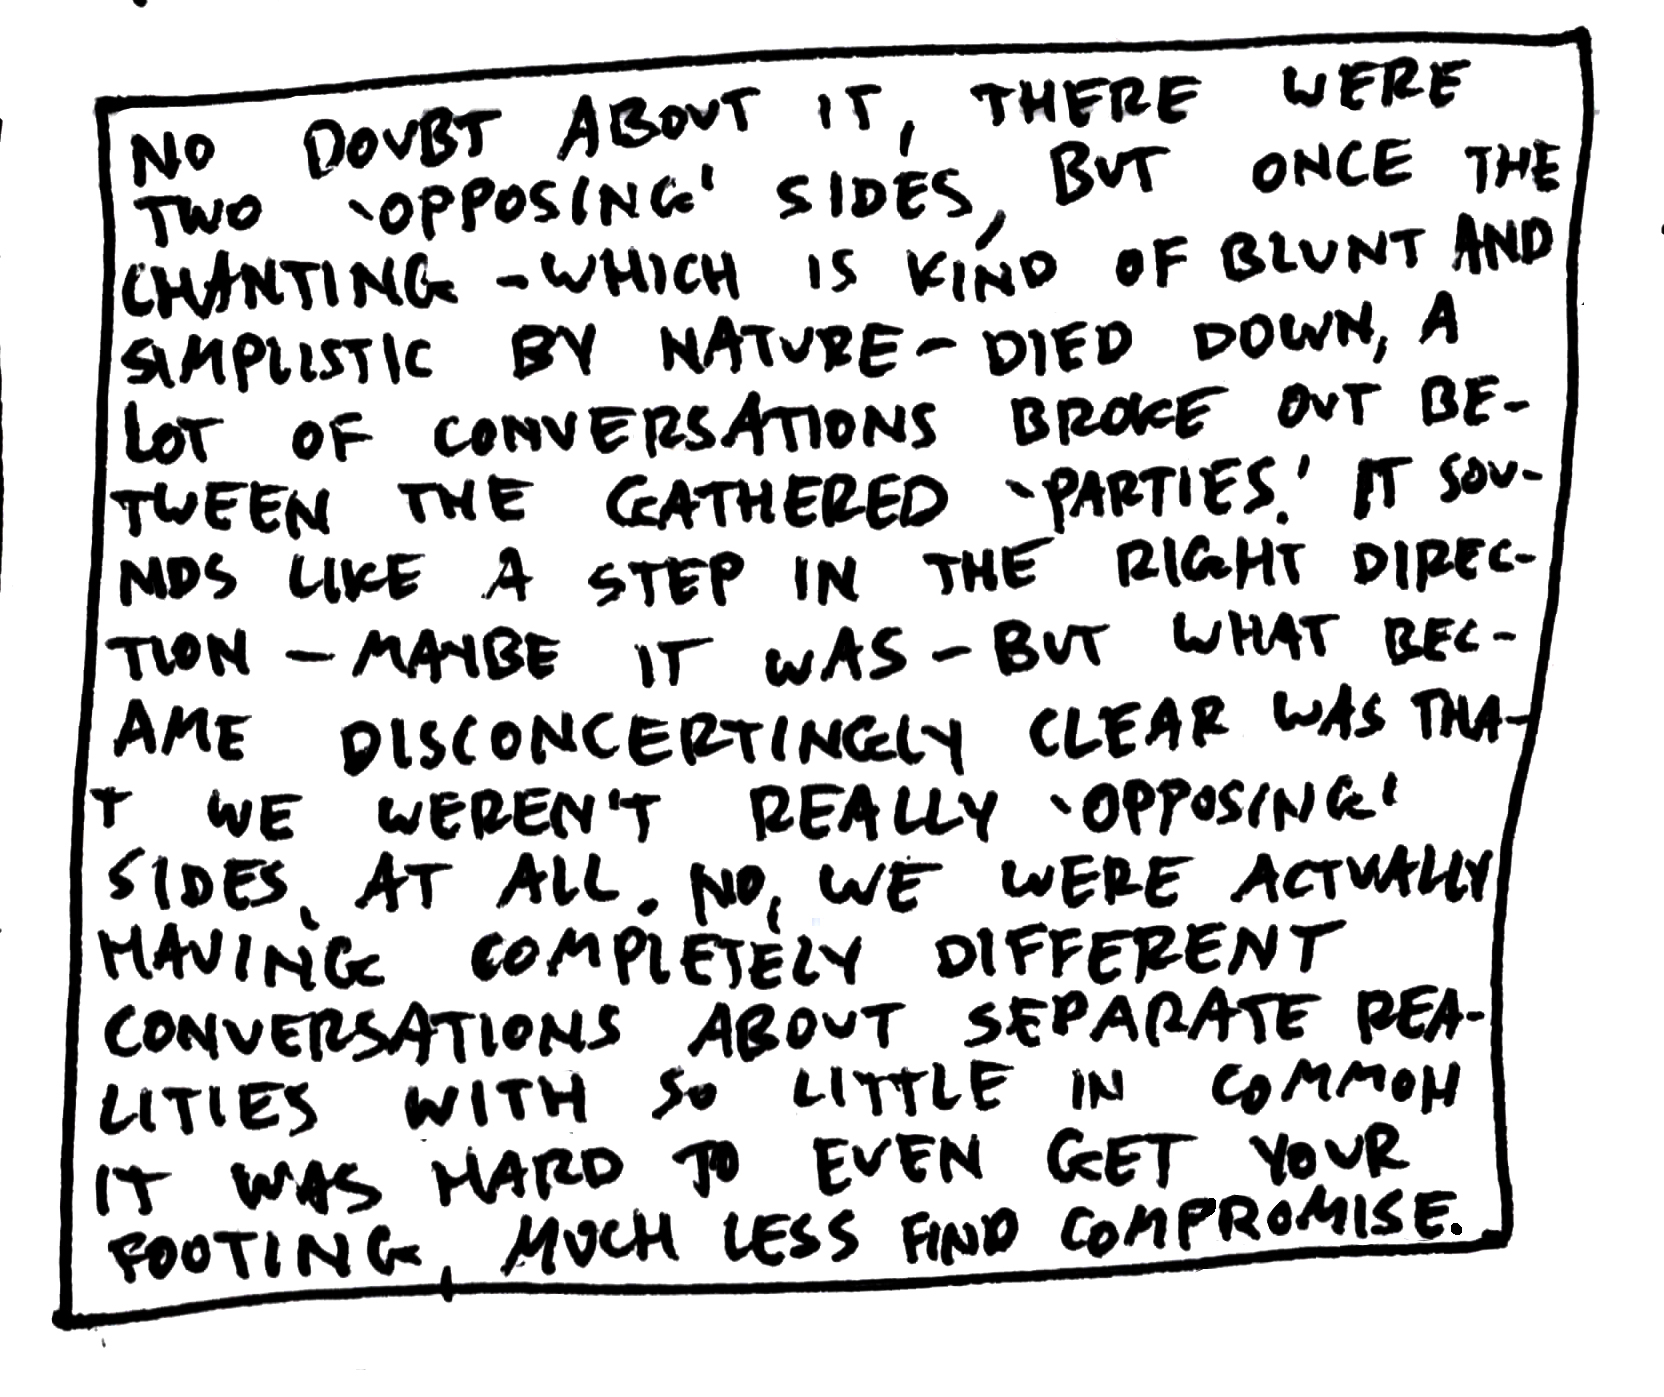 NO DOUBT ABOUT IT, THERE WERE
TWO 'OPPOSING' SIDES, BUT ONCE THE
CHANTING - WHICH IS KIND OF BLUNT AND
SIMPLISTIC BY NATURE - DIED DOWN, A
LOT OF CONVERSATIONS BROKE OUT BE-
TWEEN THE GATHERED 'PARTIES.' IT SOU-
NDS LIKE A STEP IN THE RIGHT DIREC-
TION - MAYBE IT WAS - BUT WHAT BEC-
AME DISCONCERTINGLY CLEAR WAS THA-
T WE WEREN'T REALLY 'OPPOSING'
SIDES, AT ALL. NO, WE WERE ACTUALLY
HAVING COMPLETELY DIFFERENT
CONVERSATIONS ABOUT SEPARATE REA-
LITIES WITH SO LITTLE IN COMMON
IT WAS HARD TO EVEN GET YOUR
FOOTING, MUCH LESS FIND COMPROMISE.